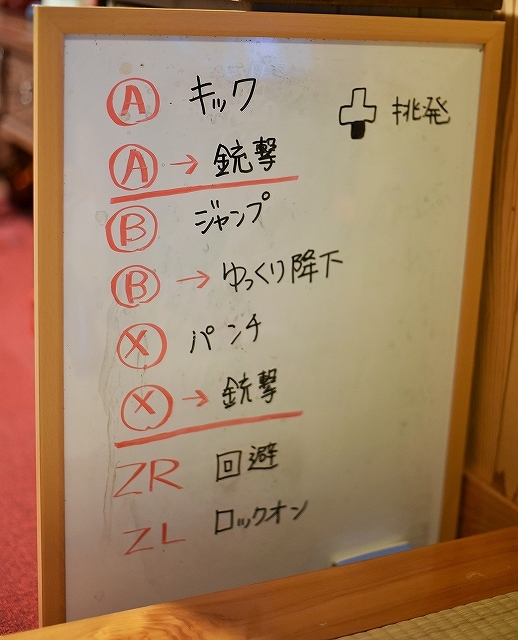 A キック
A → 銃撃
B ジャンプ
B → ゆっくり降下
X パンチ
X → 銃撃
ZR 回避
ZL ロックオン
挑発